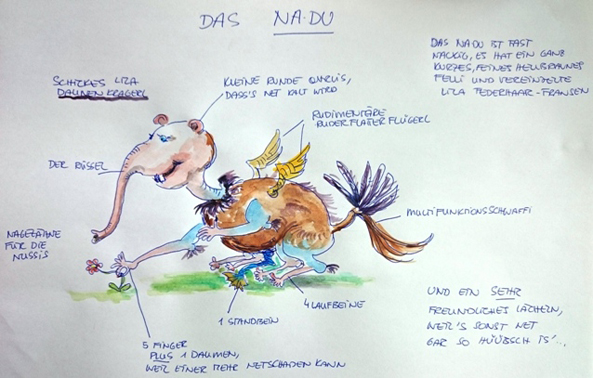 DAS NA-DU
DAS NA-DU IST FAST
NACKIG, ES HAT EIN GANZ
KURZES, FEINES HELLBRAUNES
FELLI UND VEREINZELTE
LILA FEDERHAAR-FRANSEN
SCHICKES LILA
DAUNEN KRAGERL
KLEINE RUNDE OHRLIS,
DASS'S NET KALT WIRD
RUDIMENTÄRE
RUDERFLATERFLÜGERL
DER RÜSSEL
MULTIFUNKTIONSSCHWAFFI
NAGEZÄHNE
FÜR DIE
NUSSIS
4 LAUFBEINE
1 STANDBEIN
5 FINGER
PLUS 1 DAUMEN,
WEIL EINER MEHR NET SCHADEN KANN
UND EIN SEHR
FREUNDLICHES LÄCHELN,
WEIL'S SONST NET
GAR SO HÜÜBSCH IS'...